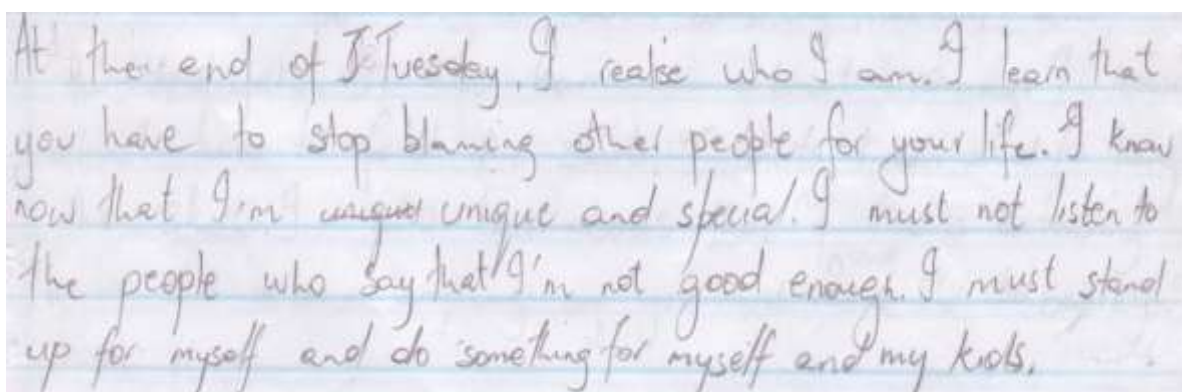 At the end of J Tuesday, I realise who I am. I learn that
you have to stop blaming other people for your life. I know
now that I'm uniqued unique and special. I must not listen to
the people who say that I'm not good enough. I must stand
up for myself and do something for myself and my kids.